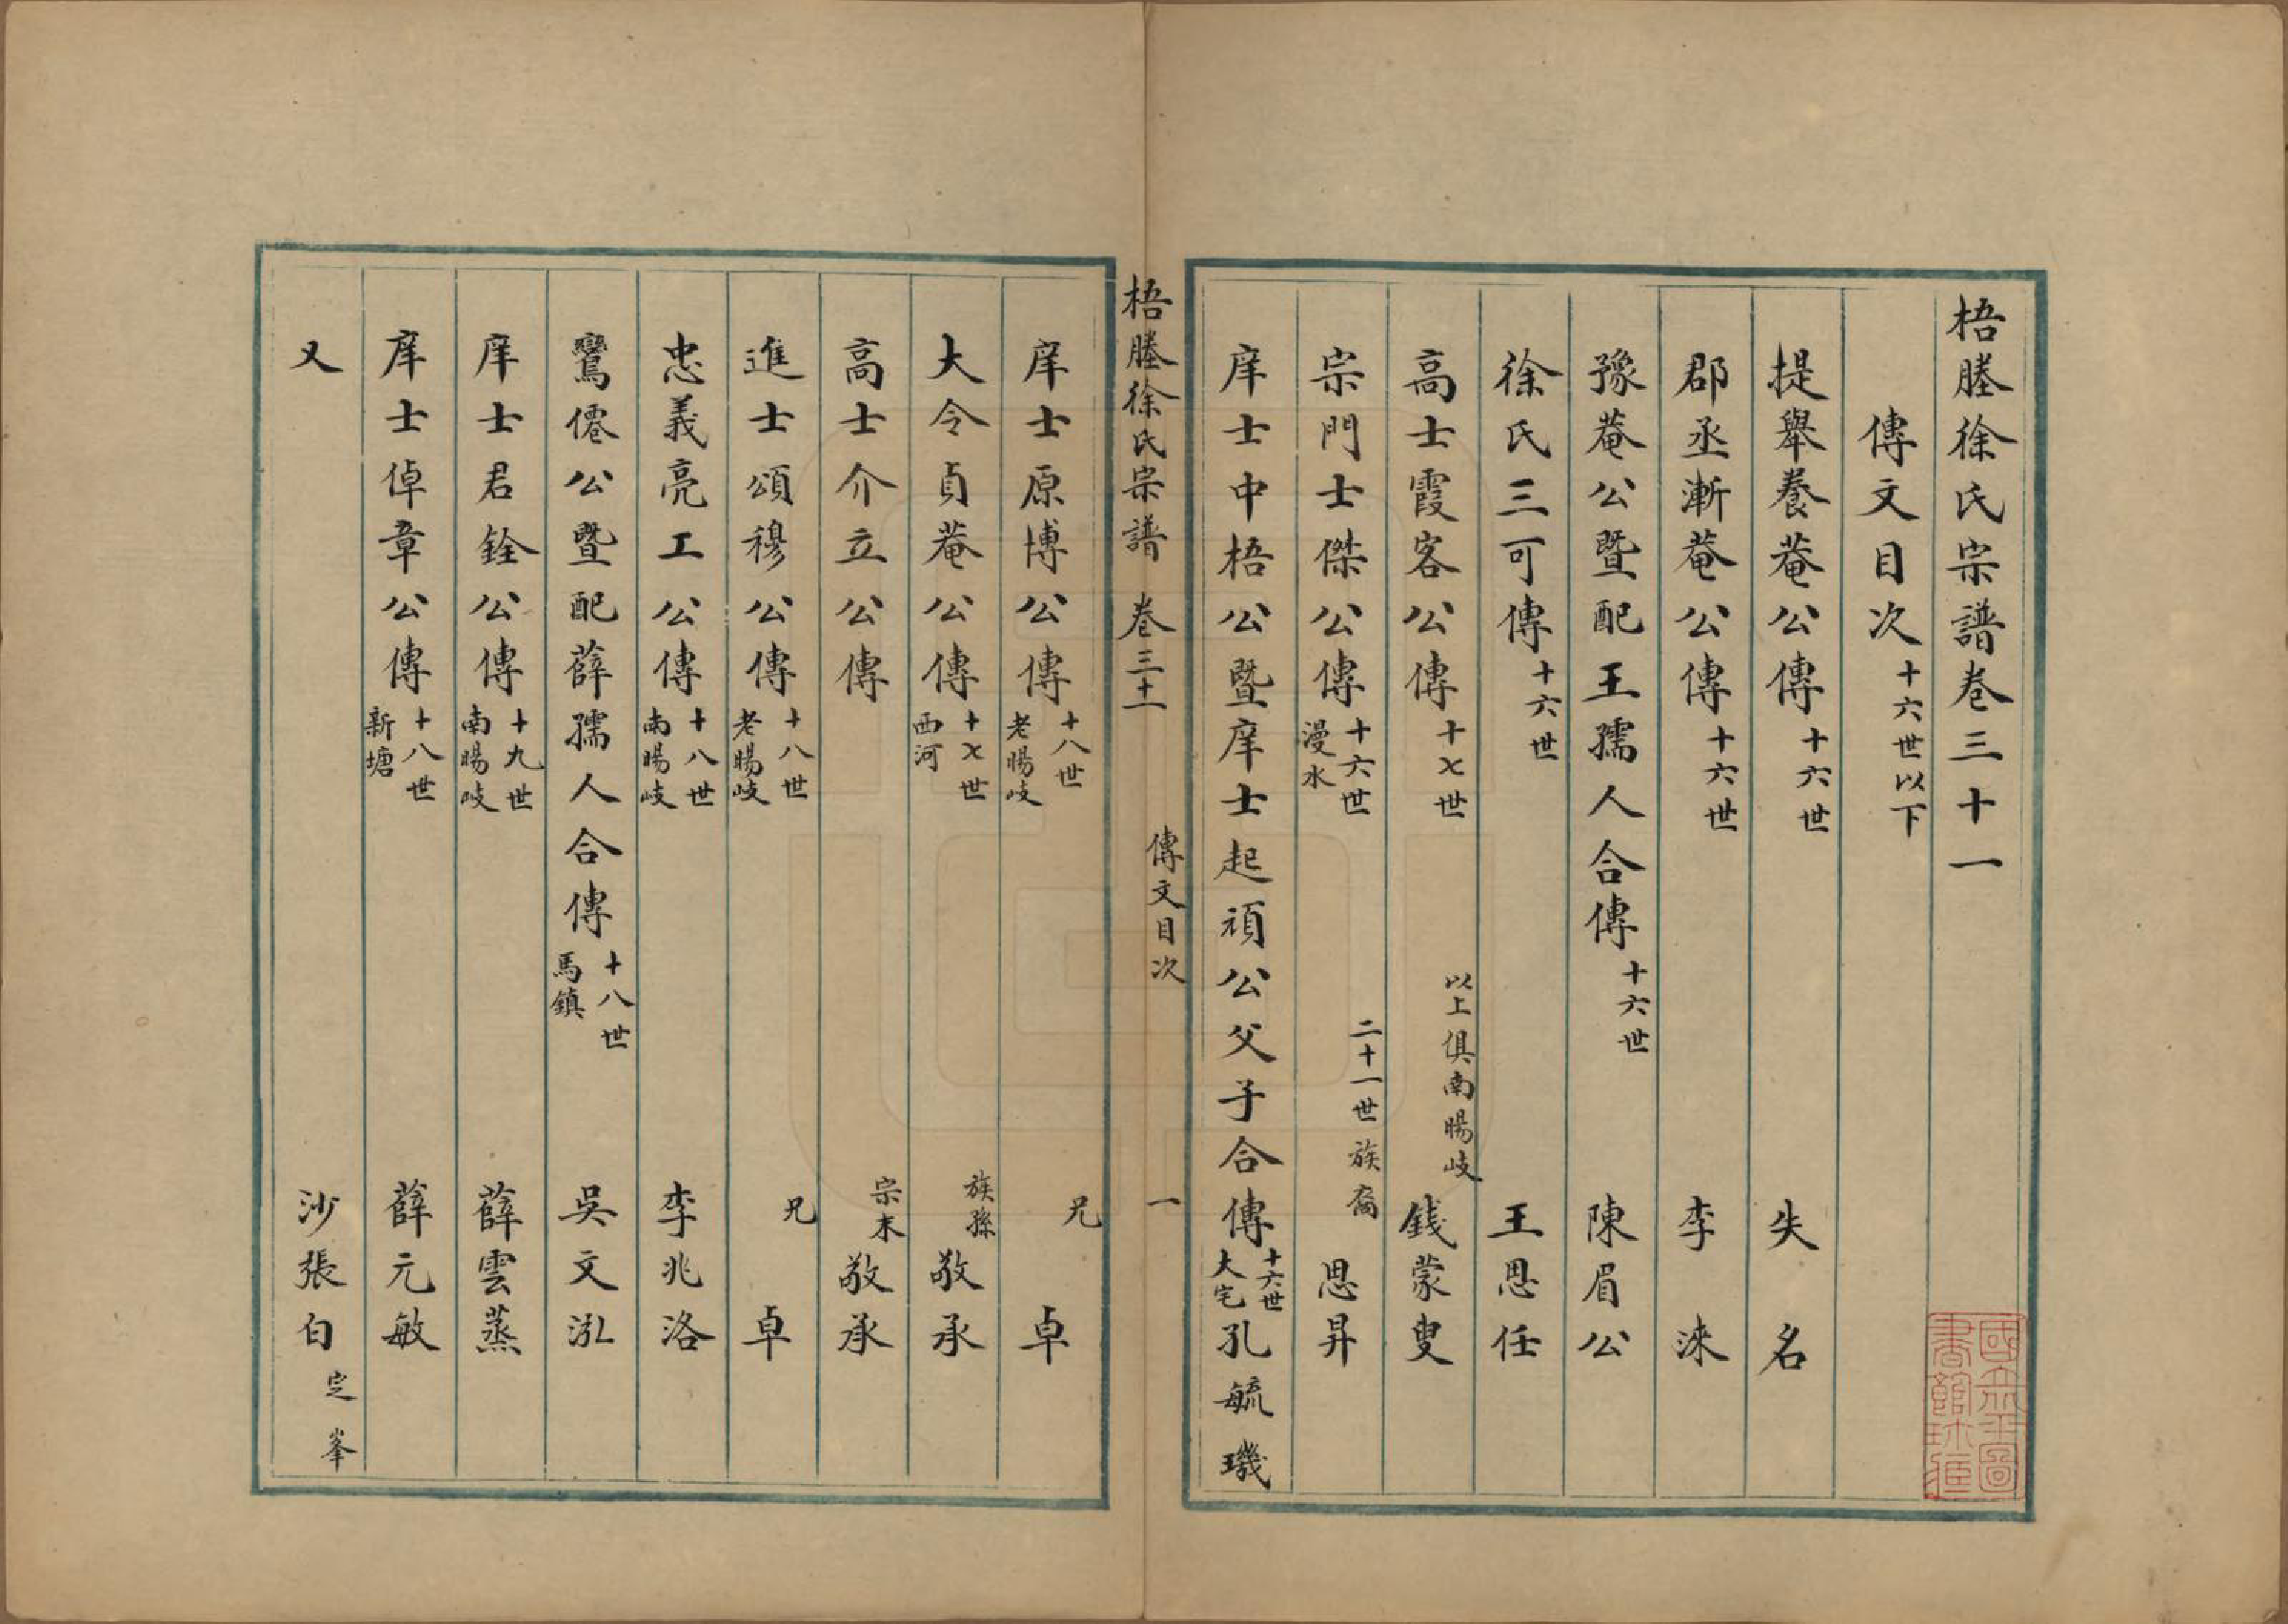 梧塍徐氏宗譜卷三十一
傳文目次 十六世以下
提舉養菴公傳 十六世 失名
郡丞漸菴公傳 十六世 李涞
豫菴公暨配王孺人合傳 十六世 陳眉公
徐氏三可傳 十六世 王思任
高士霞客公傳 十七世 以上俱南暘岐 錢蒙叟
宗門士傑公傳 十六世 漫水 二十一世族裔 思昇
庠士中梧公暨庠士起頑公父子合傳 十六世 大宅 孔毓璣
梧塍徐氏宗譜 卷三十一 傳文目次 一
庠士原博公傳 十八世 老暘岐 兄 卓
大令貞菴公傳 十七世 西河 族孫 敬承
高士介立公傳 宗末 敬承
進士頌穆公傳 十八世 老暘岐 兄 卓
忠義亮工公傳 十八世 南暘岐 李兆洛
鸞僊公暨配薛孺人合傳 十八世 馬鎮 吳文泓
庠士君銓公傳 十九世 南暘岐 薛雲蒸
庠士倬章公傳 十八世 新塘 薛元敏
又 沙張白 定峯
國立北平圖書館珍藏